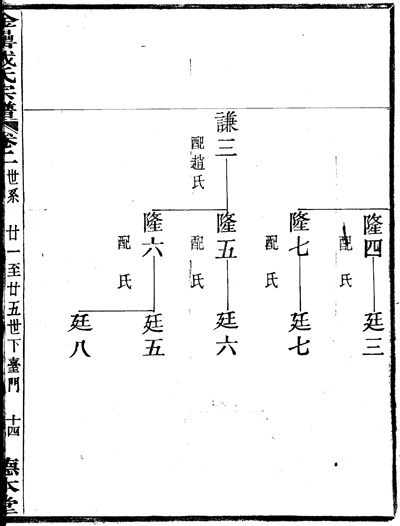 謙三
配趙氏
隆四
配 氏
隆七
配 氏
隆五
配 氏
隆六
配 氏
廷三
廷七
廷六
廷五
廷八
戚氏宗譜 卷二 世系 廿一至廿五世下臺門 十四 德本堂